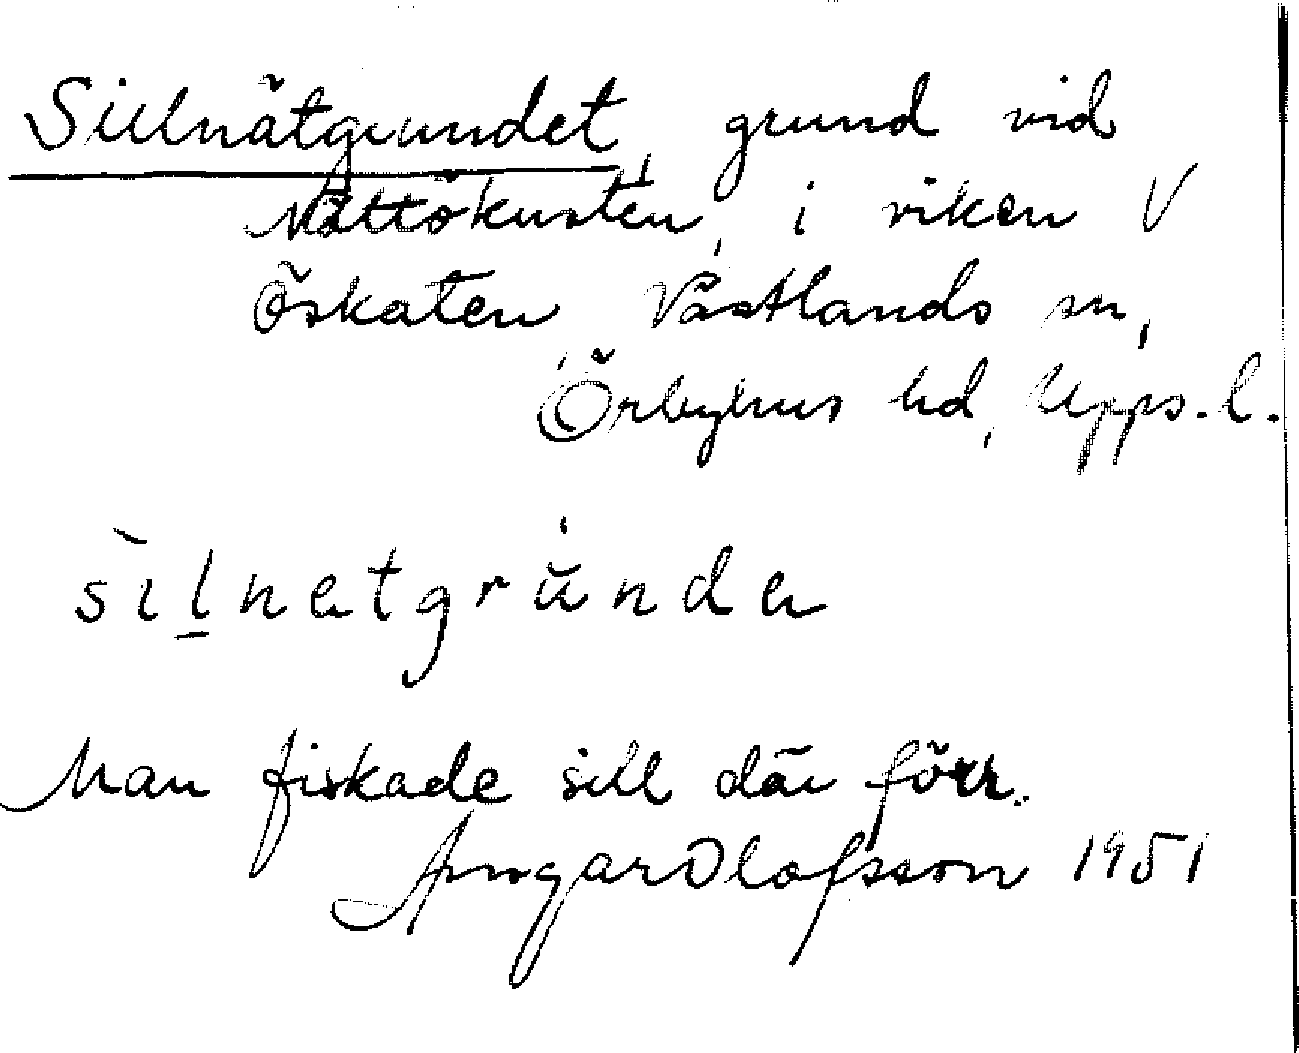 Sillnätgrundet, grund vid
Måttökusten, i viken V
Öskaten, Västlands sn,
Örbyhus hd, Upps. l.
sìlnetgrúnde
Man fiskade sill där förr.
Ansgar Olofsson 1951